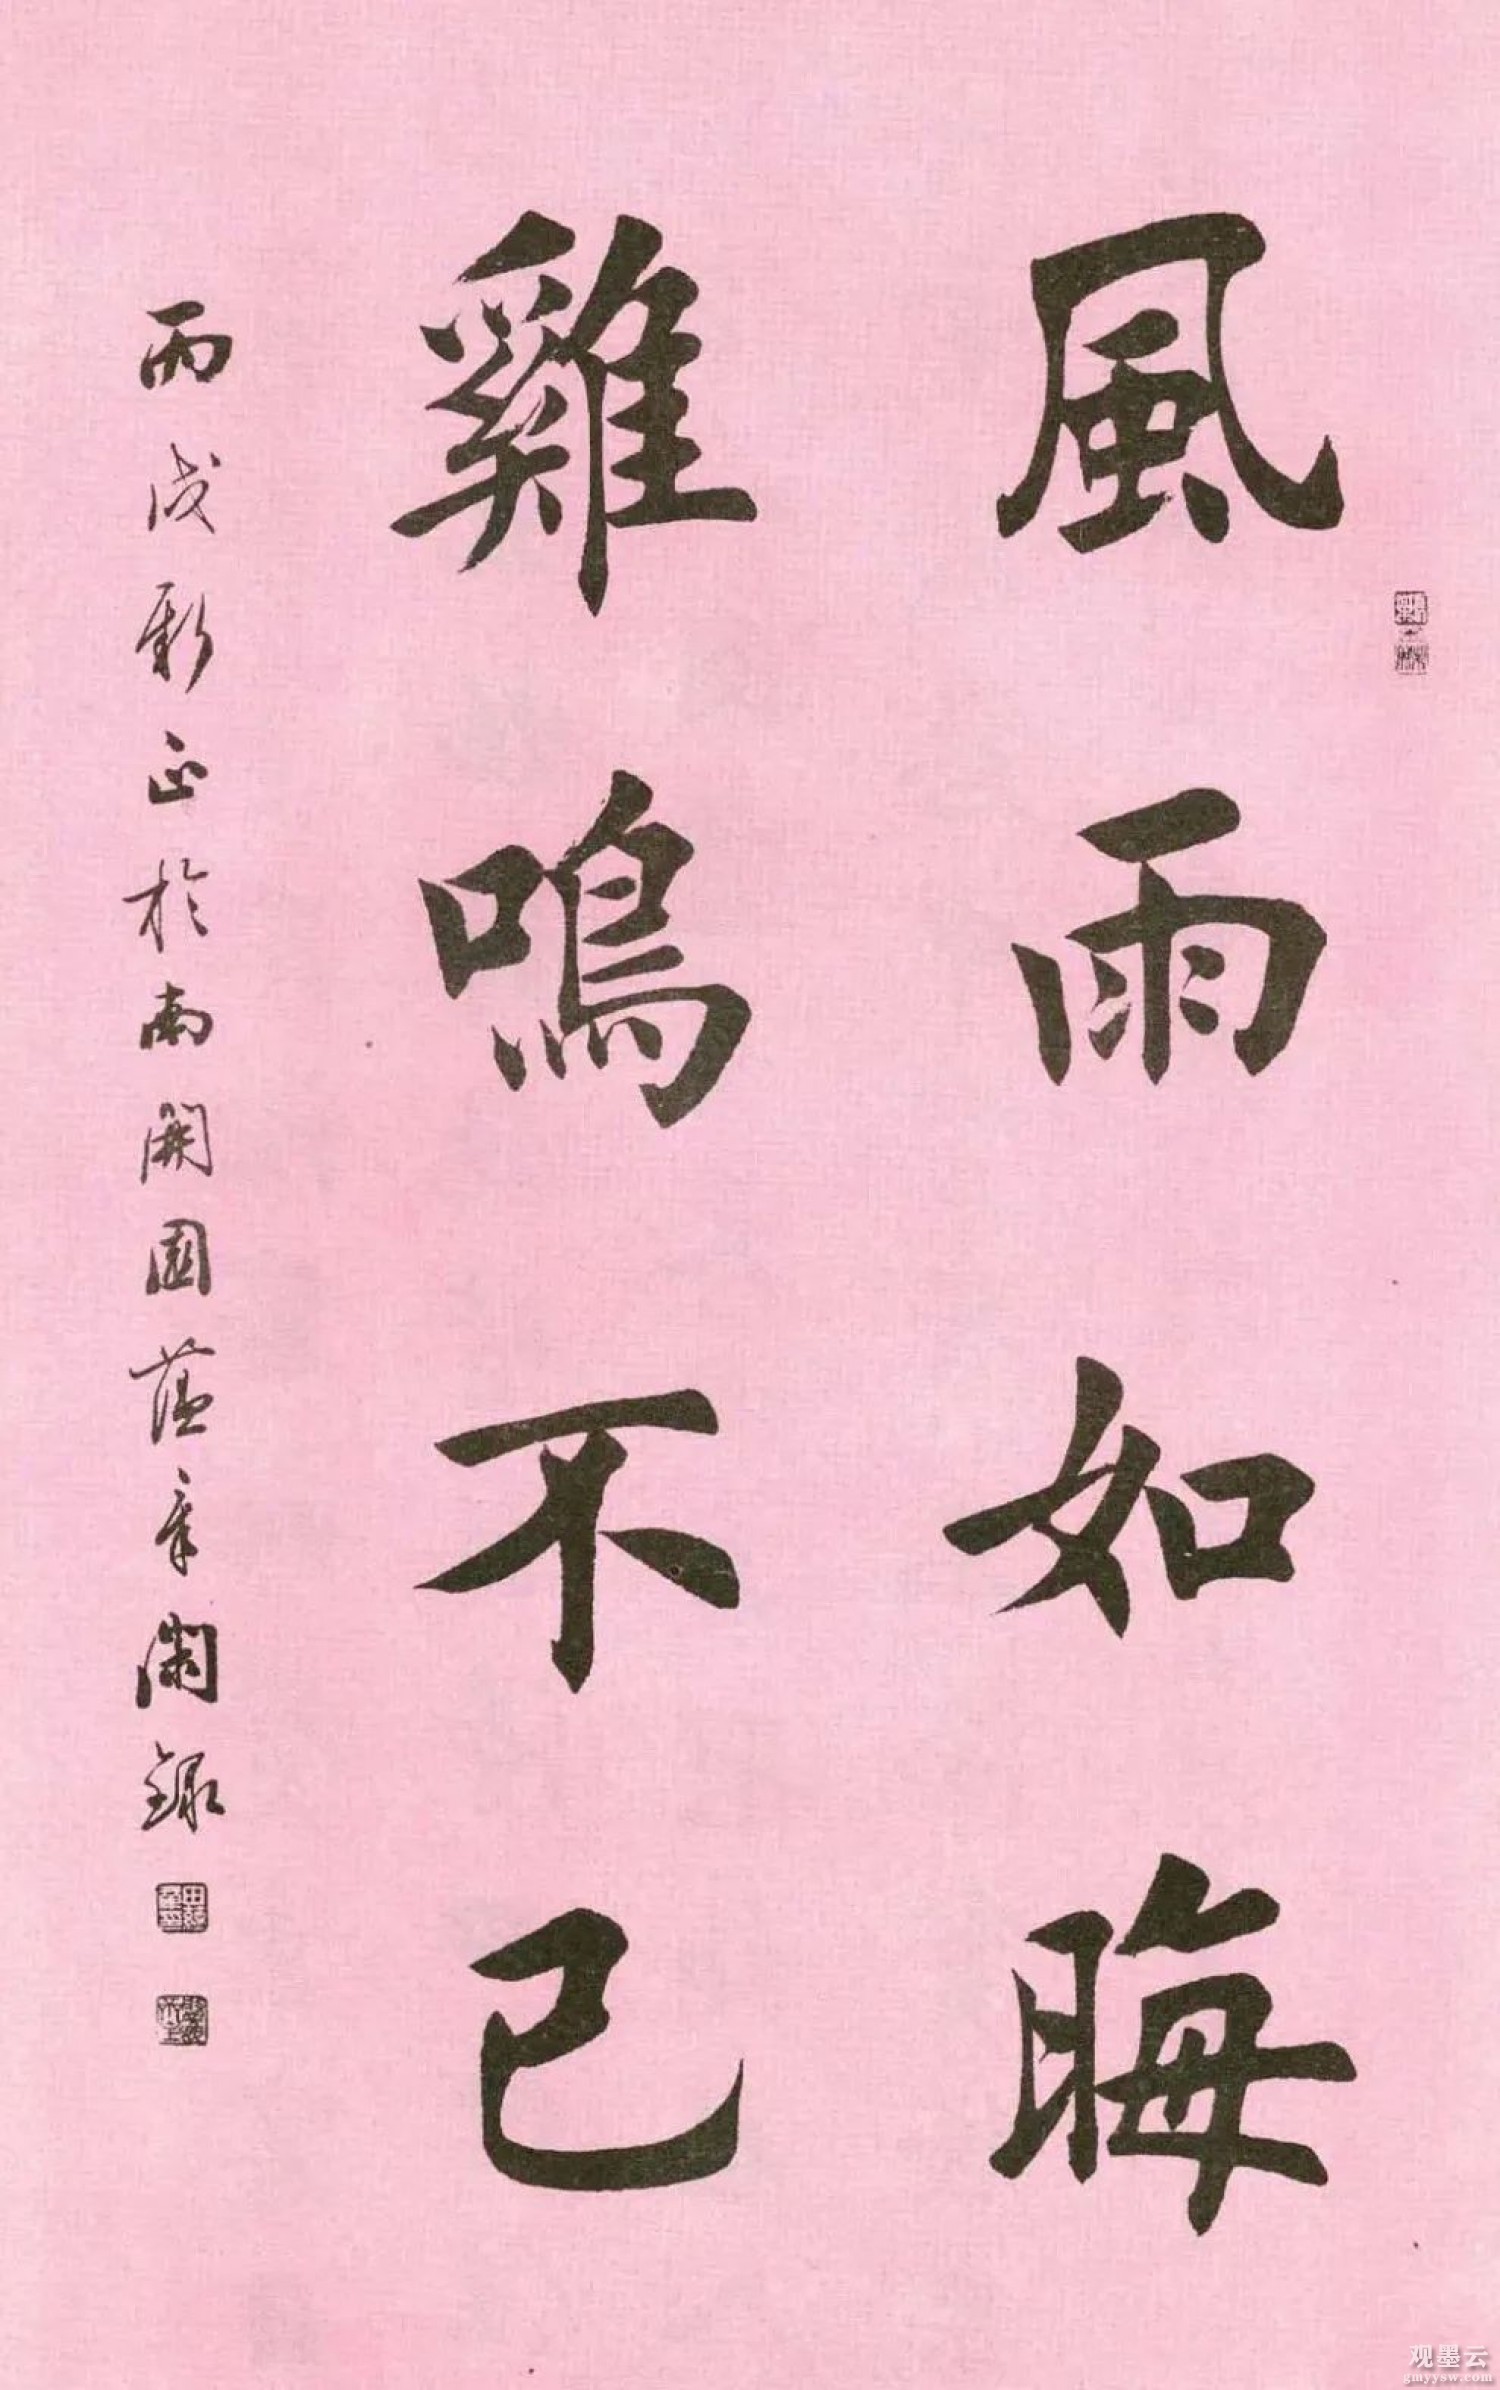 風雨如晦
雞鳴不已
丙戌新正於南開園蕴章閣錄
观墨云
gmyysw.com